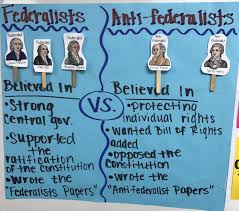 Federalists
Anti-Federalists
Believed In
• Strong
Central gov.
• Supported
the
ratification
of the
Constitution
• Wrote the
"Federalists Papers"
V.S.
Believed In
• protecting
individual rights
• Wanted Bill of Rights
added
• opposed the
Constitution
• Wrote the
"Anti-federalist Papers"